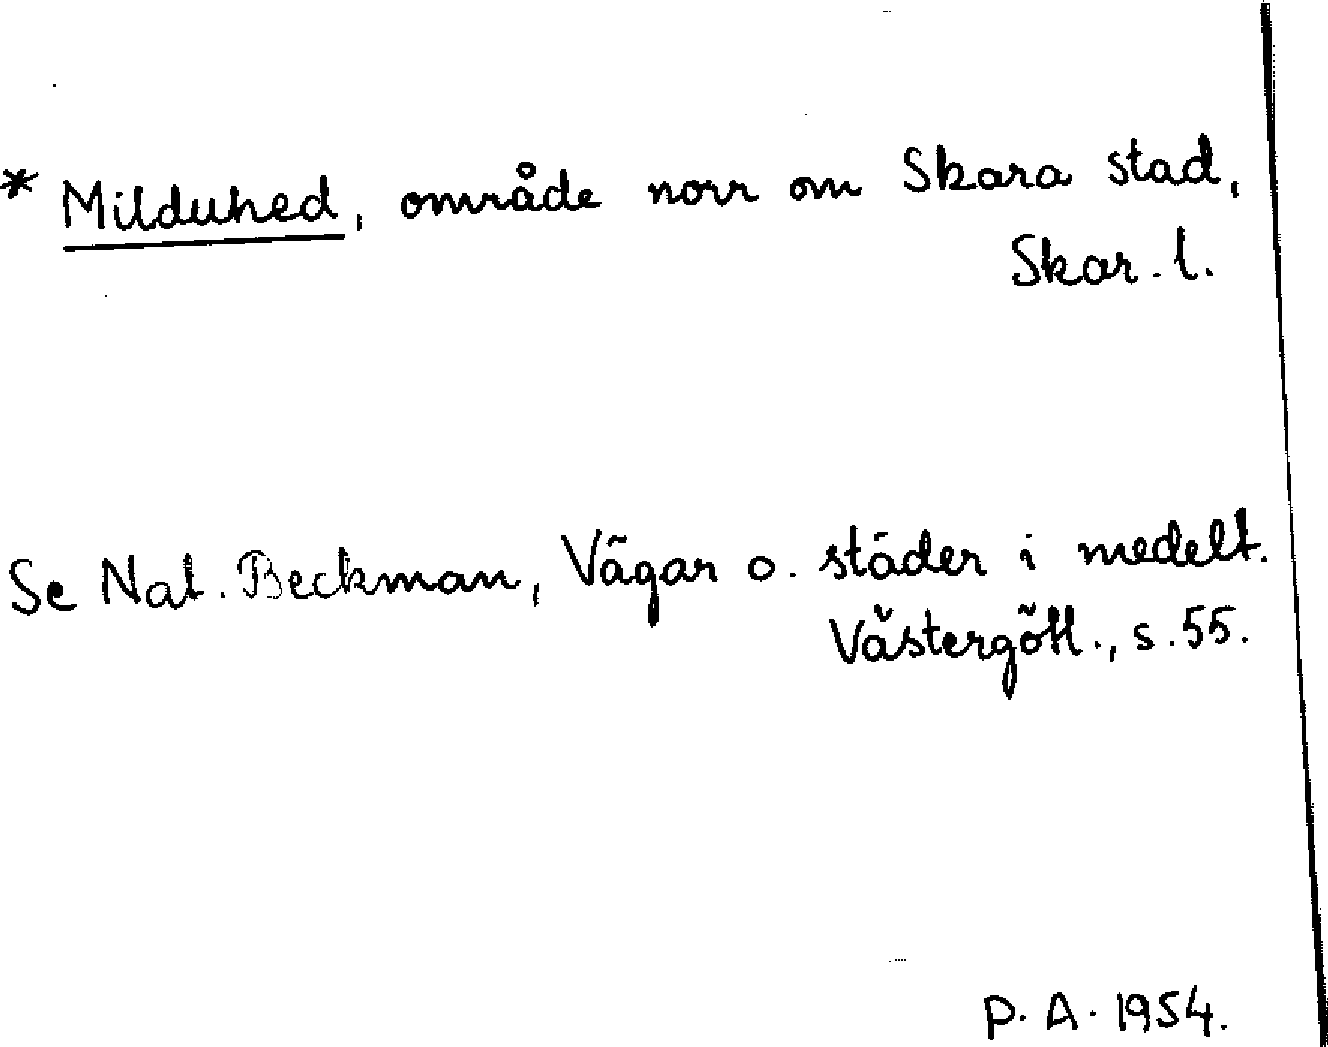 * Milduhed, område norr om Skara stad,
Skar. l.
Se Nat. Beckman, Vägar o. städer i medelt.
Västergötl., s. 55.
P. A. 1954.